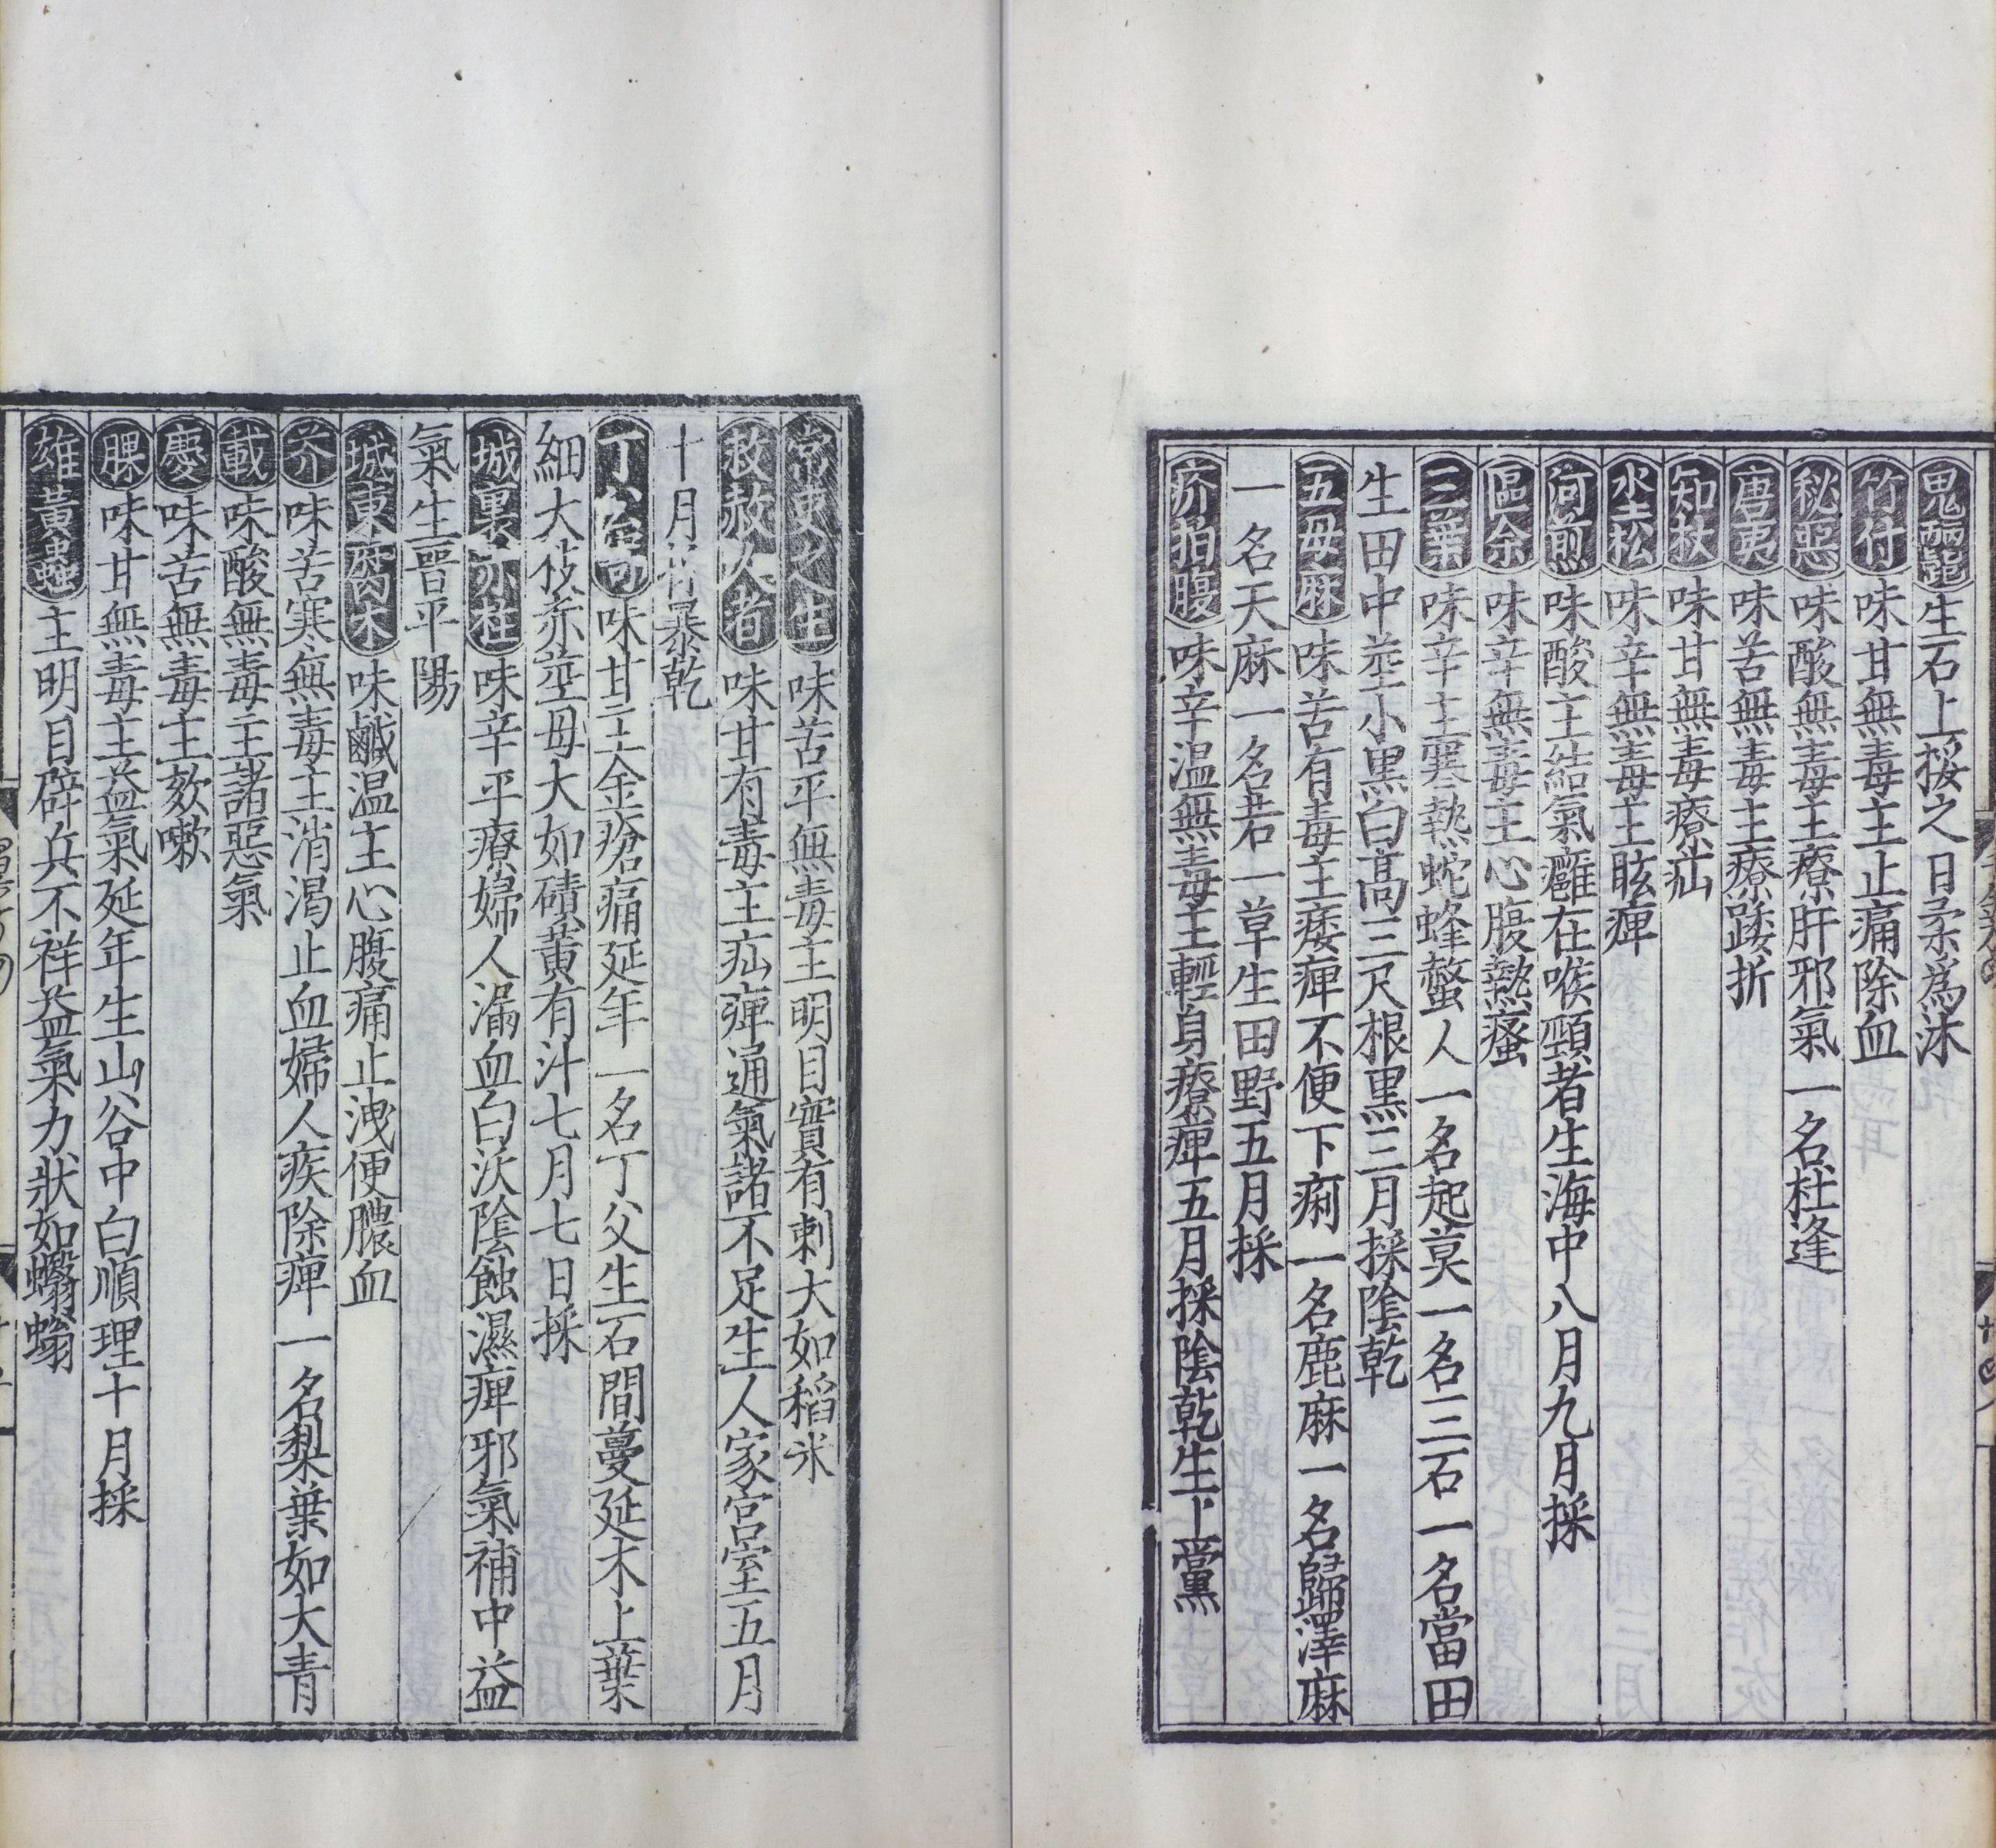 鬼䰡生石上挼之日柔爲沐
竹付味甘無毒主止痛除血
秘惡味酸無毒主療肝邪氣一名杜逢
唐夷味苦無毒主療踒折
知杖味甘無毒療疝
坐松味辛無毒主眩痺
河煎味酸主結氣癰在喉頸者生海中八月九月採
區余味辛無毒主心腹熱瘙
三葉味辛主寒熱蛇蜂螫人一名起莫一名三石一名當田
生田中莖小黑白高三尺根黑三月採陰乾
五母麻味苦有毒主痿痺不便下痢一名鹿麻一名歸澤麻
一名天麻一名若一草生田野五月採
疥拍腹味辛温無毒主輕身療痺五月採陰乾生上黨
常吏之生味苦平無毒主明目實有刺大如稻米
救赦人者味甘有毒主疝痺通氣諸不足生人家宮室五月
十月採暴乾
丁公寄味甘主金瘡痛延年一名丁父生石間蔓延木上葉
細大枝赤莖母大如磧黃有汁七月七日採
城裏赤柱味辛平療婦人漏血白沃陰蝕濕痺邪氣補中益
氣生晉平陽
城東腐木味鹹温主心腹痛止洩便膿血
芥味苦寒無毒主消渴止血婦人疾除痺一名梨葉如大青
載味酸無毒主諸惡氣
慶味苦無毒主欬嗽
腂味甘無毒主益氣延年生山谷中白順理十月採
雄黃蟲主明目辟兵不祥益氣力狀如蠮螉